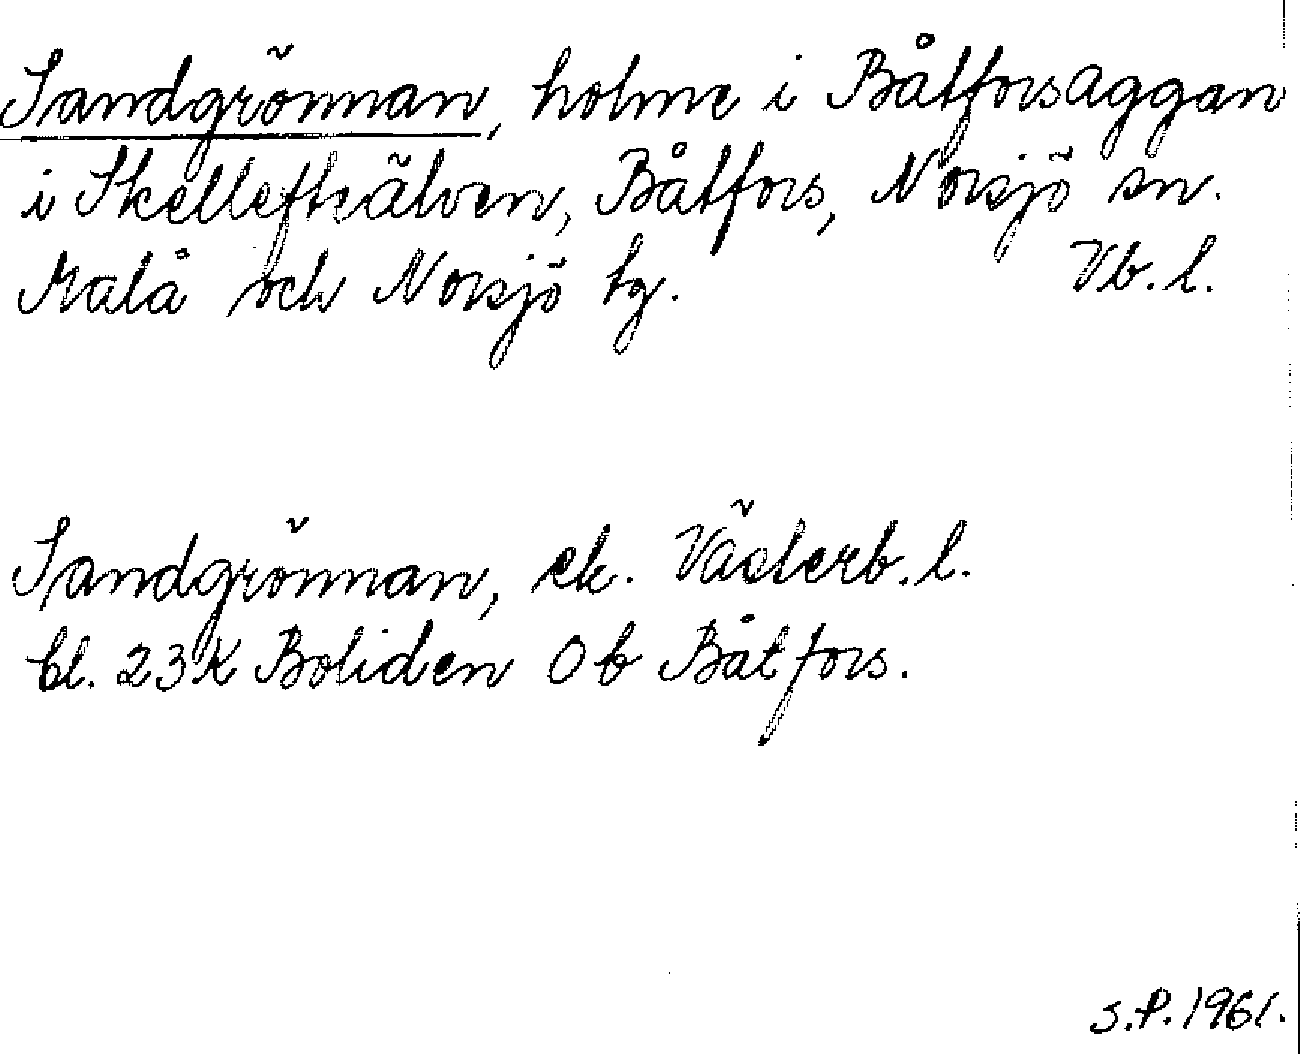 Sandgrönnan, holme i Båtforsaggan
i Skellefteälven, Båtfors, Norsjö sn.
Malå och Norsjö tg. Vb. l.
Sandgrönnan, ek. Västerb. l.
bl. 23K Boliden 0 b Båtfors.
S.P. 1961.